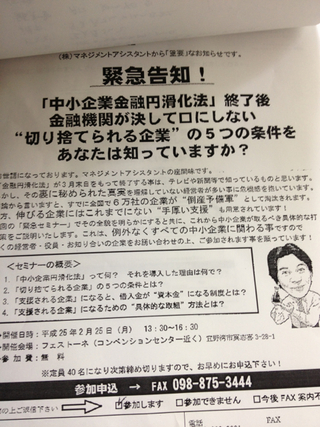 (株)マネジメントアシスタントから「重要」なお知らせです。
緊急告知!
「中小企業金融円滑化法」終了後
金融機関が決して口にしない
“切り捨てられる企業”の5つの条件を
あなたは知っていますか?
世話になっております。マネジメントアシスタントの座間味です。
金融円滑化法」が3月末日をもって終了する事は、テレビや新聞等で知っているものと思います。
かし、その裏に秘められた真実を理解していない経営者が多い事に危機感を抱いています。
論から言いますと、すでに全国で6万社の企業が“倒産予備軍”としてカウントされています。
方、伸びる企業にはこれまでにない“手厚い支援”も用意されています!
の「緊急セミナー」でその全貌を明らかにすると共に、これから中小企業が取るべき具体的な打
をご説明いたします。これは、例外なくすべての中小企業に関わる事ですので
くの経営者・役員・お知り合いの企業をお誘い合わせの上、ご参加されます事を願っています!
<セミナーの概要>
1.「中小企業円滑化法」って何? それを導入した理由は何で?
2.「切り捨てられる企業」の5つの条件とは?
3.「支援される企業」になると、借入金が“資本金”になる制度とは?
4.「支援される企業」になるための“具体的な取組”方法とは?
開催日時:平成25年2月25日(月) 13:30~16:30
開催会場:フェストーネ(コンベンションセンター近く)宜野湾市真志喜3-28-1
参加費:無料
※定員40名になり次第締め切りますので、お早めにお申込下さい!
参加申込 → FAX 098-875-3444
の上ご返信下さい! 参加します □参加できません □今後FAX不
電話
FAX